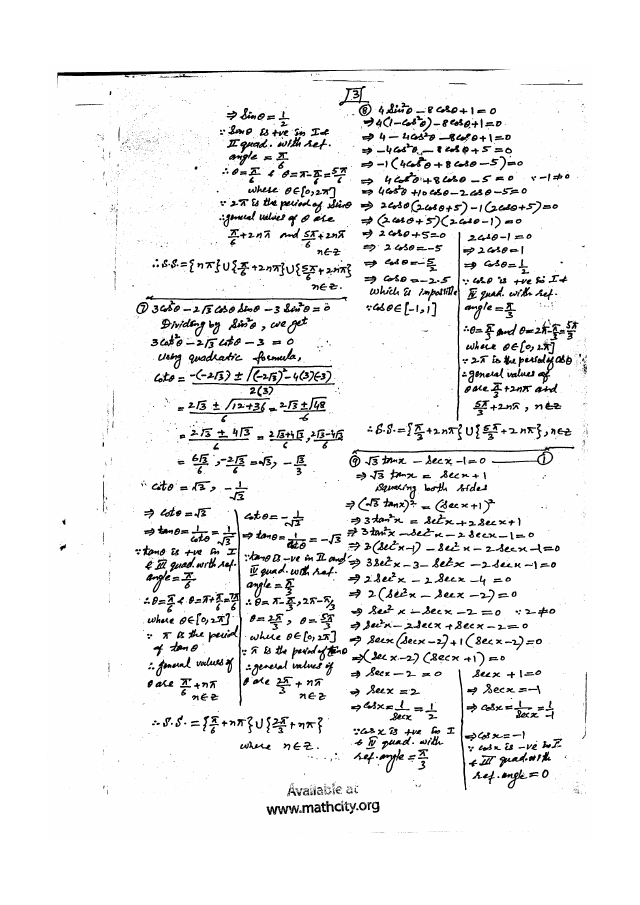 3
⇒ Sinθ = 1/2
∵ Sinθ is +ve in I &
II quad. with ref.
angle = π/6
∴ θ = π/6 & θ = π - π/6 = 5π/6
where θ∈[0,2π]
∵ 2π is the period of Sinθ
∴ general values of θ are
π/6 + 2nπ and 5π/6 + 2nπ
n∈Z
∴ S.S. = {nπ} ∪ {π/6 + 2nπ} ∪ {5π/6 + 2nπ}
n∈Z.
⑦ 3cos²θ - 2√3 cosθ sinθ - 3 sin²θ = 0
Dividing by Sin²θ, we get
3cot²θ - 2√3 cotθ - 3 = 0
Using quadratic formula,
cotθ = -(-2√3) ± √(-2√3)² - 4(3)(-3) / 2(3)
= 2√3 ± √12+36 / 6 = 2√3 ± √48 / 6
= 2√3 ± 4√3 / 6 = 2√3+4√3 / 6, 2√3-4√3 / 6
= 6√3/6, -2√3/6 = √3, -√3/3
∴ cotθ = √3, -1/√3
⇒ cotθ = √3
⇒ tanθ = 1/cotθ = 1/√3
∵ tanθ is +ve in I
& III quad. with ref.
angle = π/6
∴ θ = π/6 & θ = π + π/6 = 7π/6
where θ∈[0,2π]
∵ π is the period
of tanθ
∴ general values of
θ are π/6 + nπ
n∈Z
cotθ = -1/√3
⇒ tanθ = 1/cotθ = -√3
∵ tanθ is -ve in II and
IV quad. with ref.
angle = π/3
∴ θ = π - π/3, 2π - π/3
θ = 2π/3, θ = 5π/3
where θ∈[0,2π]
∵ π is the period of tanθ
∴ general values of
θ are 2π/3 + nπ
n∈Z
∴ S.S. = {π/6 + nπ} ∪ {2π/3 + nπ}
where n∈Z.
⑧ 4Sin²θ - 8cosθ + 1 = 0
⇒ 4(1-cos²θ) - 8cosθ + 1 = 0
⇒ 4 - 4cos²θ - 8cosθ + 1 = 0
⇒ -4cos²θ - 8cosθ + 5 = 0
⇒ -1(4cos²θ + 8cosθ - 5) = 0
⇒ 4cos²θ + 8cosθ - 5 = 0 ∵ -1≠0
⇒ 4cos²θ + 10cosθ - 2cosθ - 5 = 0
⇒ 2cosθ(2cosθ+5) - 1(2cosθ+5) = 0
⇒ (2cosθ+5)(2cosθ-1) = 0
⇒ 2cosθ + 5 = 0
⇒ 2cosθ = -5
⇒ cosθ = -5/2
⇒ cosθ = -2.5
which is impossible
∵ cosθ∈[-1,1]
2cosθ - 1 = 0
⇒ 2cosθ = 1
⇒ cosθ = 1/2
∵ cosθ is +ve in I &
IV quad. with ref.
angle = π/3
∴ θ = π/3 and θ = 2π - π/3 = 5π/3
where θ∈[0,2π]
∵ 2π is the period of cosθ
∴ general values of
θ are π/3 + 2nπ and
5π/3 + 2nπ, n∈Z
∴ S.S. = {π/3 + 2nπ} ∪ {5π/3 + 2nπ}, n∈Z
⑨ √3 tanx - Secx - 1 = 0 ①
⇒ √3 tanx = Secx + 1
Squaring both sides
⇒ (√3 tanx)² = (Secx+1)²
⇒ 3tan²x = Sec²x + 2Secx + 1
⇒ 3tan²x - Sec²x - 2Secx - 1 = 0
⇒ 3(Sec²x-1) - Sec²x - 2Secx - 1 = 0
⇒ 3Sec²x - 3 - Sec²x - 2Secx - 1 = 0
⇒ 2Sec²x - 2Secx - 4 = 0
⇒ 2(Sec²x - Secx - 2) = 0
⇒ Sec²x - Secx - 2 = 0 ∵ 2≠0
⇒ Sec²x - 2Secx + Secx - 2 = 0
⇒ Secx(Secx-2) + 1(Secx-2) = 0
⇒ (Secx-2)(Secx+1) = 0
⇒ Secx - 2 = 0
⇒ Secx = 2
⇒ cosx = 1/Secx = 1/2
∵ cosx is +ve in I
& IV quad. with
ref. angle = π/3
Secx + 1 = 0
⇒ Secx = -1
⇒ cosx = 1/Secx = 1/-1
⇒ cosx = -1
∵ cosx is -ve in II
& III quad. with
ref. angle = 0
Available at
www.mathcity.org